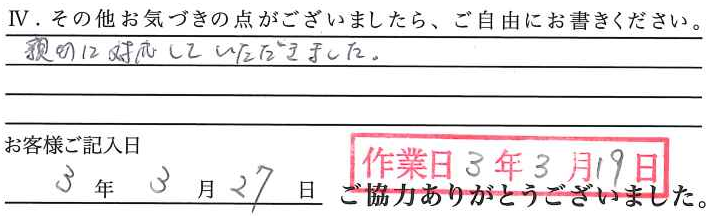 Ⅳ．その他お気づきの点がございましたら、ご自由にお書きください。
親切に対応していただきました。
お客様ご記入日
3 年 3 月 27 日
作業日 3 年 3 月 19 日
ご協力ありがとうございました。